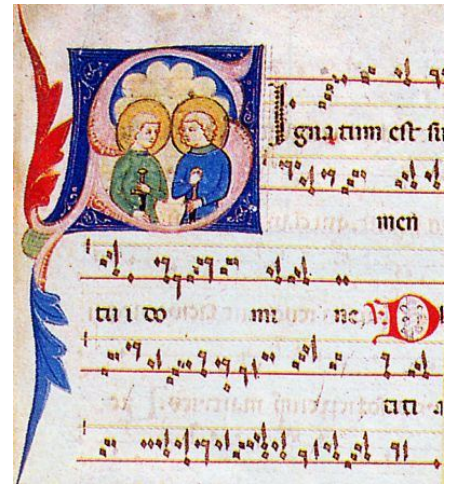 SIgnatum est su
men
tui do mi ne. D